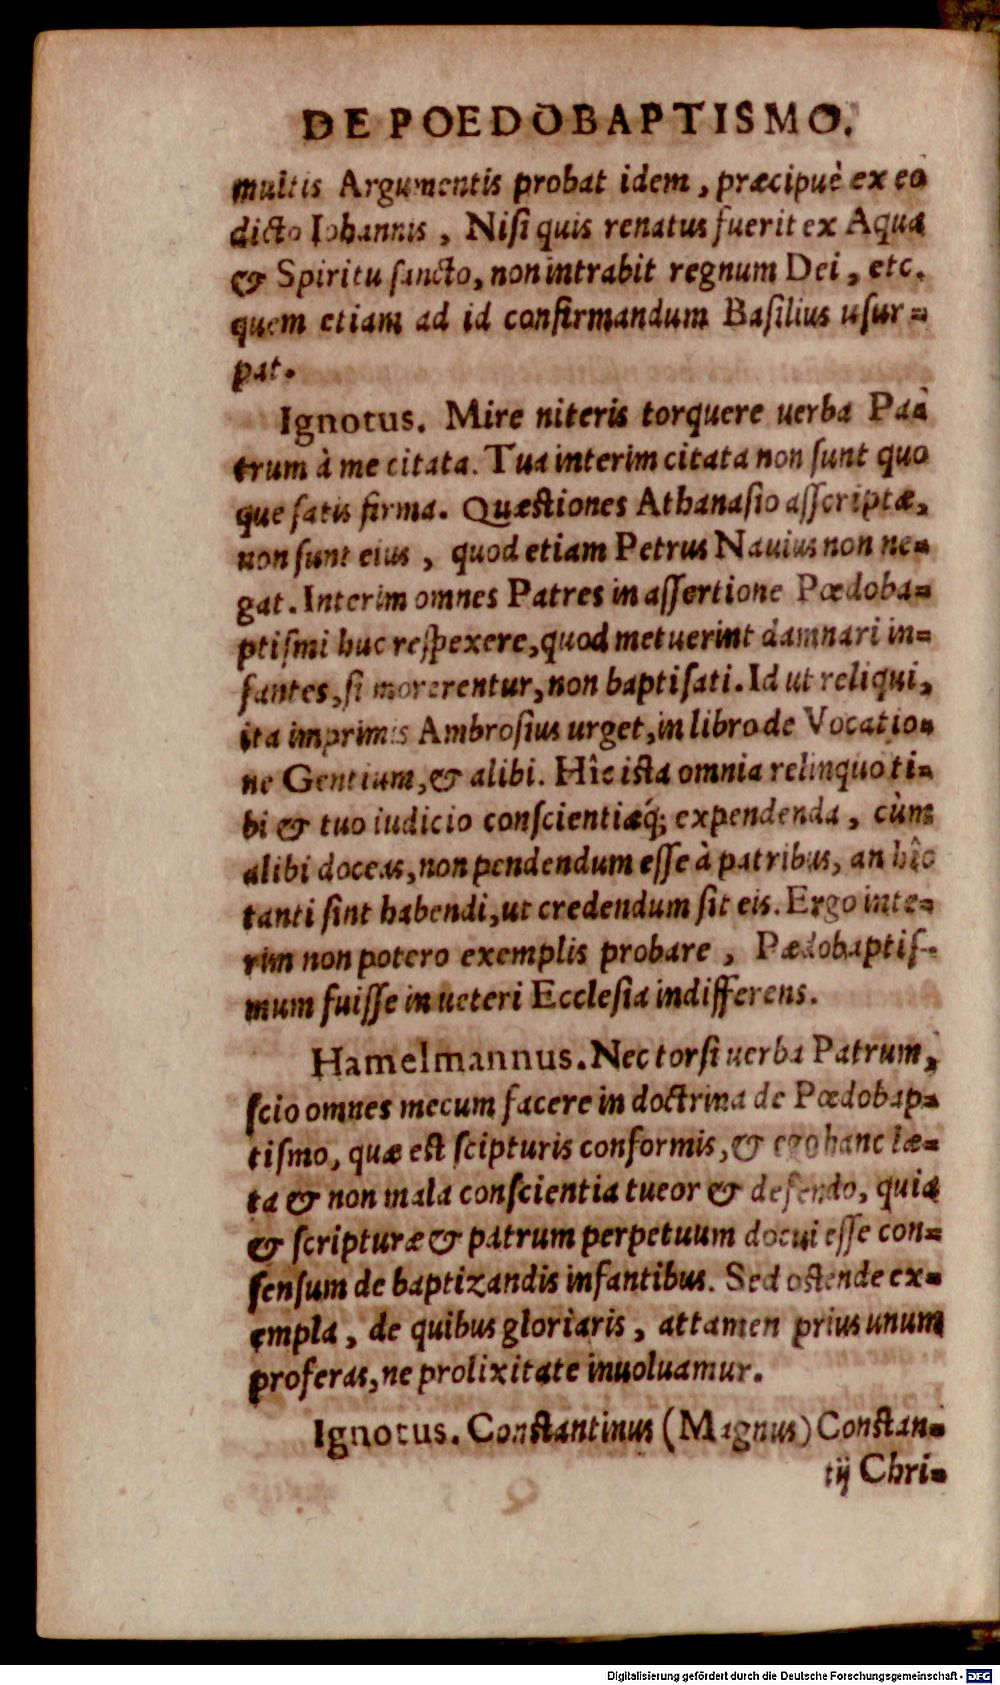 DE POEDOBAPTISMO.
multis Argumentis probat idem, præcipuè ex eo
dicto Iohannis, Nisi quis renatus fuerit ex Aqua
& Spiritu sancto, non intrabit regnum Dei, etc.
quem etiam ad id confirmandum Basilius usur=
pat.
Ignotus. Mire niteris torquere uerba Pa=
trum à me citata. Tua interim citata non sunt quo
que satis firma. Quæstiones Athanasio asscriptæ,
non sunt eius, quod etiam Petrus Nauius non ne=
gat. Interim omnes Patres in assertione Pœdoba=
ptismi huc respexere, quod metuerint damnari in=
fantes, si morerentur, non baptisati. Id ut reliqui,
ita imprimis Ambrosius urget, in libro de Vocatio=
ne Gentium, & alibi. Hîc ista omnia relinquo ti=
bi & tuo iudicio conscientiæq́; expendenda, cùm
alibi doceas, non pendendum esse à patribus, an hîc
tanti sint habendi, ut credendum sit eis. Ergo inte=
rim non potero exemplis probare, Pædobaptis=
mum fuisse in ueteri Ecclesia indifferens.
Hamelmannus. Nec torsi uerba Patrum,
scio omnes mecum facere in doctrina de Pœdobap=
tismo, quæ est scipturis conformis, & ego hanc læ=
ta & non mala conscientia tueor & defendo, quia
& scripturæ & patrum perpetuum docui esse con=
sensum de baptizandis infantibus. Sed ostende ex=
empla, de quibus gloriàris, attamen prius unum
proferas, ne prolixitate inuoluamur.
Ignotus. Constantinus (Magnus) Constan=
tij Chri=
Digitalisierung gefördert durch die Deutsche Forschungsgemeinschaft - DFG